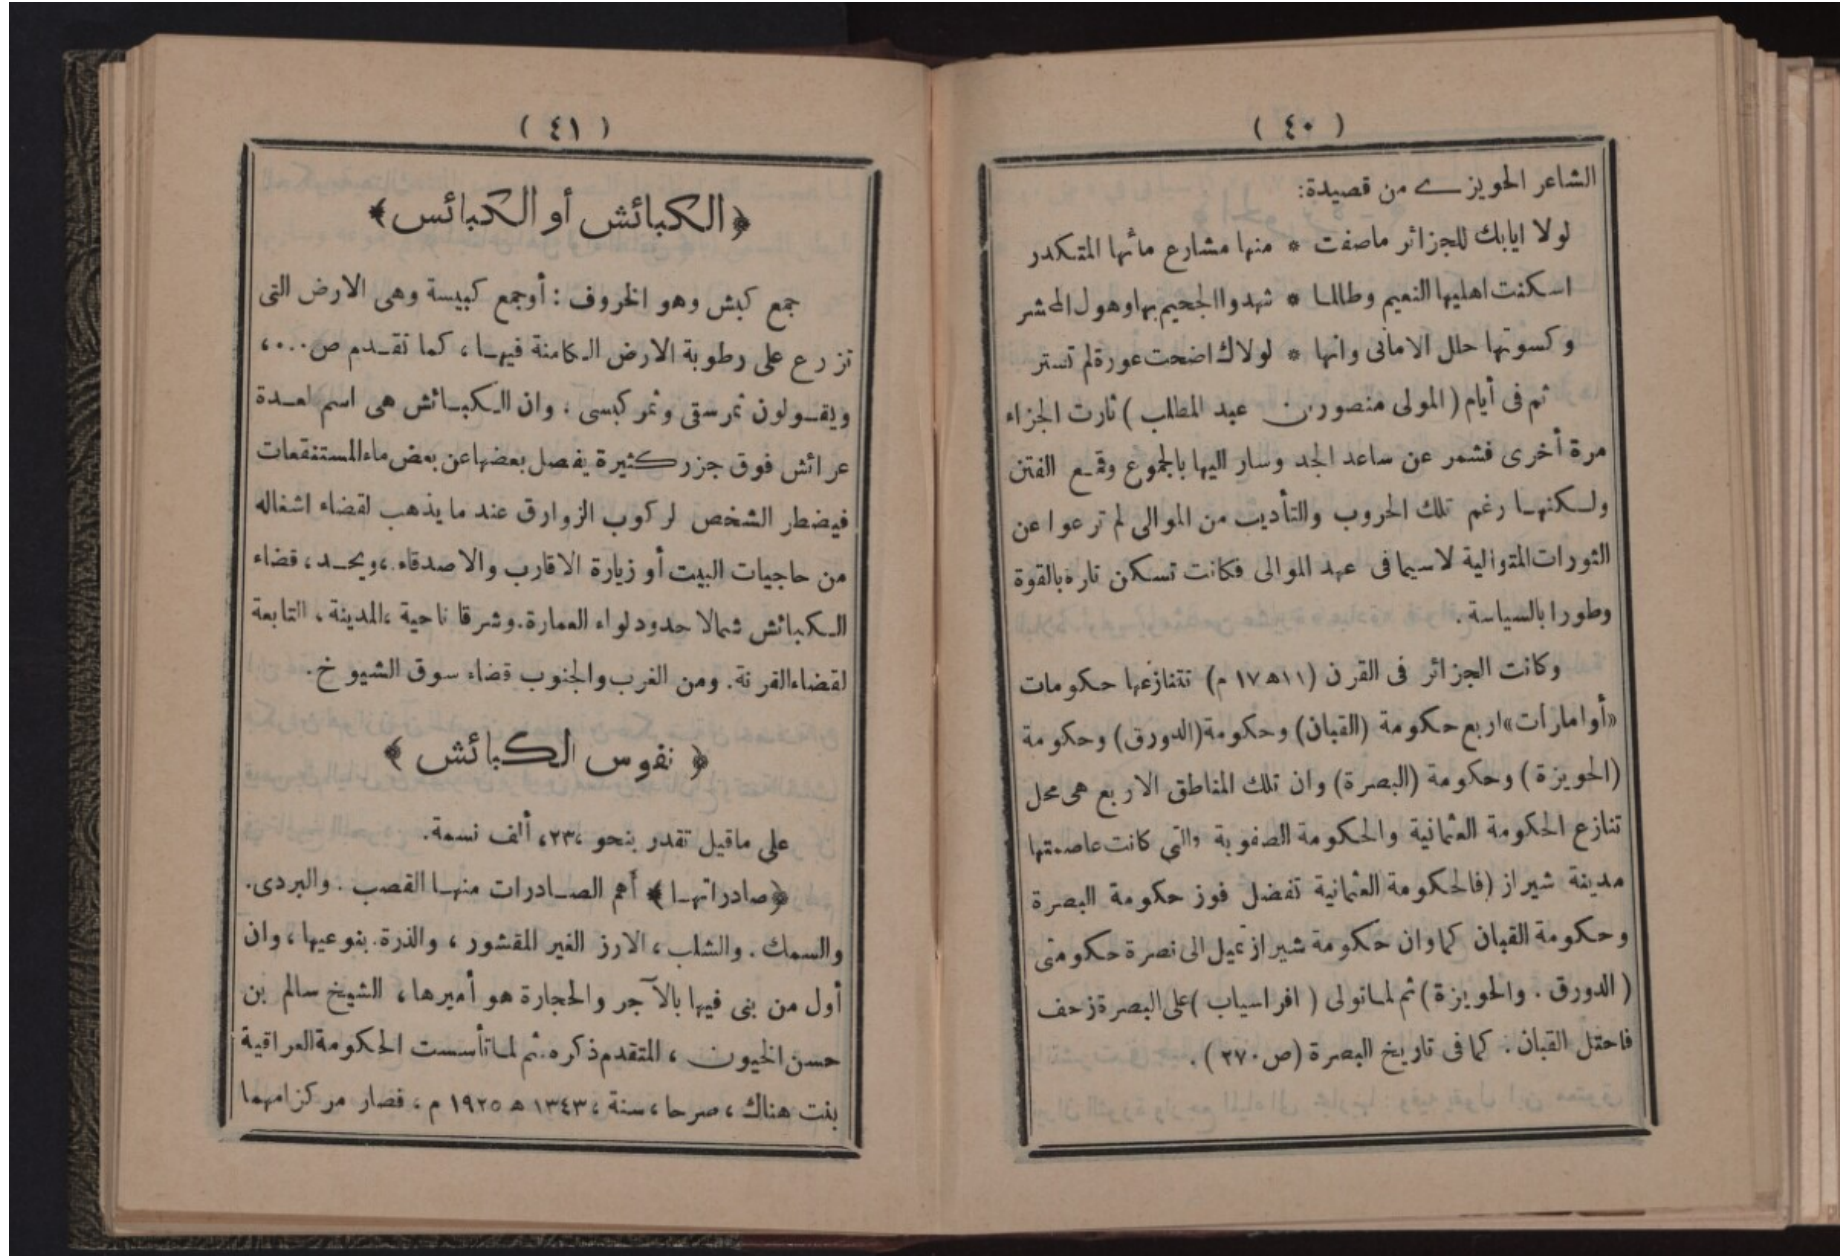 ( ٤٠ )
الشاعر الحويزي من قصيدة:
لولا ايابك للجزائر ماصفت * منها مشارع مائها المتكدر
اسكنت اهليها النعيم وطالما * شهدوا الجحيم بها وهول المحشر
وكسوتها حلل الامانى وانها * لولاك اضحت عورة لم تستر
ثم فى أيام (المولى منصور بن عبد المطلب) ثارت الجزاء
مرة أخرى فشمر عن ساعد الجد وسار اليها بالجموع وقمع الفتن
ولكنها رغم تلك الحروب والتأديب من الموالى لم ترعوا عن
الثورات المتوالية لاسيما فى عهد الموالى فكانت تسكن تارة بالقوة
وطورا بالسياسة.
وكانت الجزائر فى القرن (١١ه ١٧ م) تتنازعها حكومات
«أو امارات» اربع حكومة (القبان) وحكومة (الدورق) وحكومة
(الحويزة) وحكومة (البصرة) وان تلك المناطق الاربع هى محل
تنازع الحكومة العثمانية والحكومة الصفوية والتي كانت عاصمتها
مدينة شيراز (فالحكومة العثمانية تفضل فوز حكومة البصرة
وحكومة القبان كما وان حكومة شيراز تميل الى نصرة حكومتى
(الدورق. والحويزة) ثم لما تولى (افراسياب) على البصرة زحف
فاحتل القبان. كما فى تاريخ البصرة (ص ٢٧٠).
( ٤١ )
﴿الكبائش أو الكبائس﴾
جمع كبش وهو الخروف: أوجمع كبيسة وهى الارض التى
تزرع على رطوبة الارض الكامنة فيها، كما تقدم ص ٠٠٠،
ويقولون تمر سقى وتمر كبسى، وان الكبائش هى اسم لعدة
عرائش فوق جزر كثيرة يفصل بعضها عن بعض ماء المستنقعات
فيضطر الشخص لركوب الزوارق عند ما يذهب لقضاء اشغاله
من حاجيات البيت أو زيارة الاقارب والاصدقاء، ويحد، قضاء
الكبائش شمالا حدود لواء العمارة. وشرقا ناحية، المدينة، التابعة
لقضاء القرنة. ومن الغرب والجنوب قضاء سوق الشيوخ.
﴿ نفوس الكبائش ﴾
على ماقيل تقدر بنحو ،٢٣، ألف نسمة.
﴿صادراتها﴾ أهم الصادرات منها القصب. والبردى.
والسمك. والشلب، الارز الغير المقشور، والذرة. بنوعيها، وان
أول من بنى فيها بالآجر والحجارة هو أميرها، الشيخ سالم بن
حسن الخيون، المتقدم ذكره. ثم لما تأسست الحكومة العراقية
بنت هناك، صرحا، سنة، ١٣٤٣ ه ١٩٢٥ م، فصار مركزا مهما